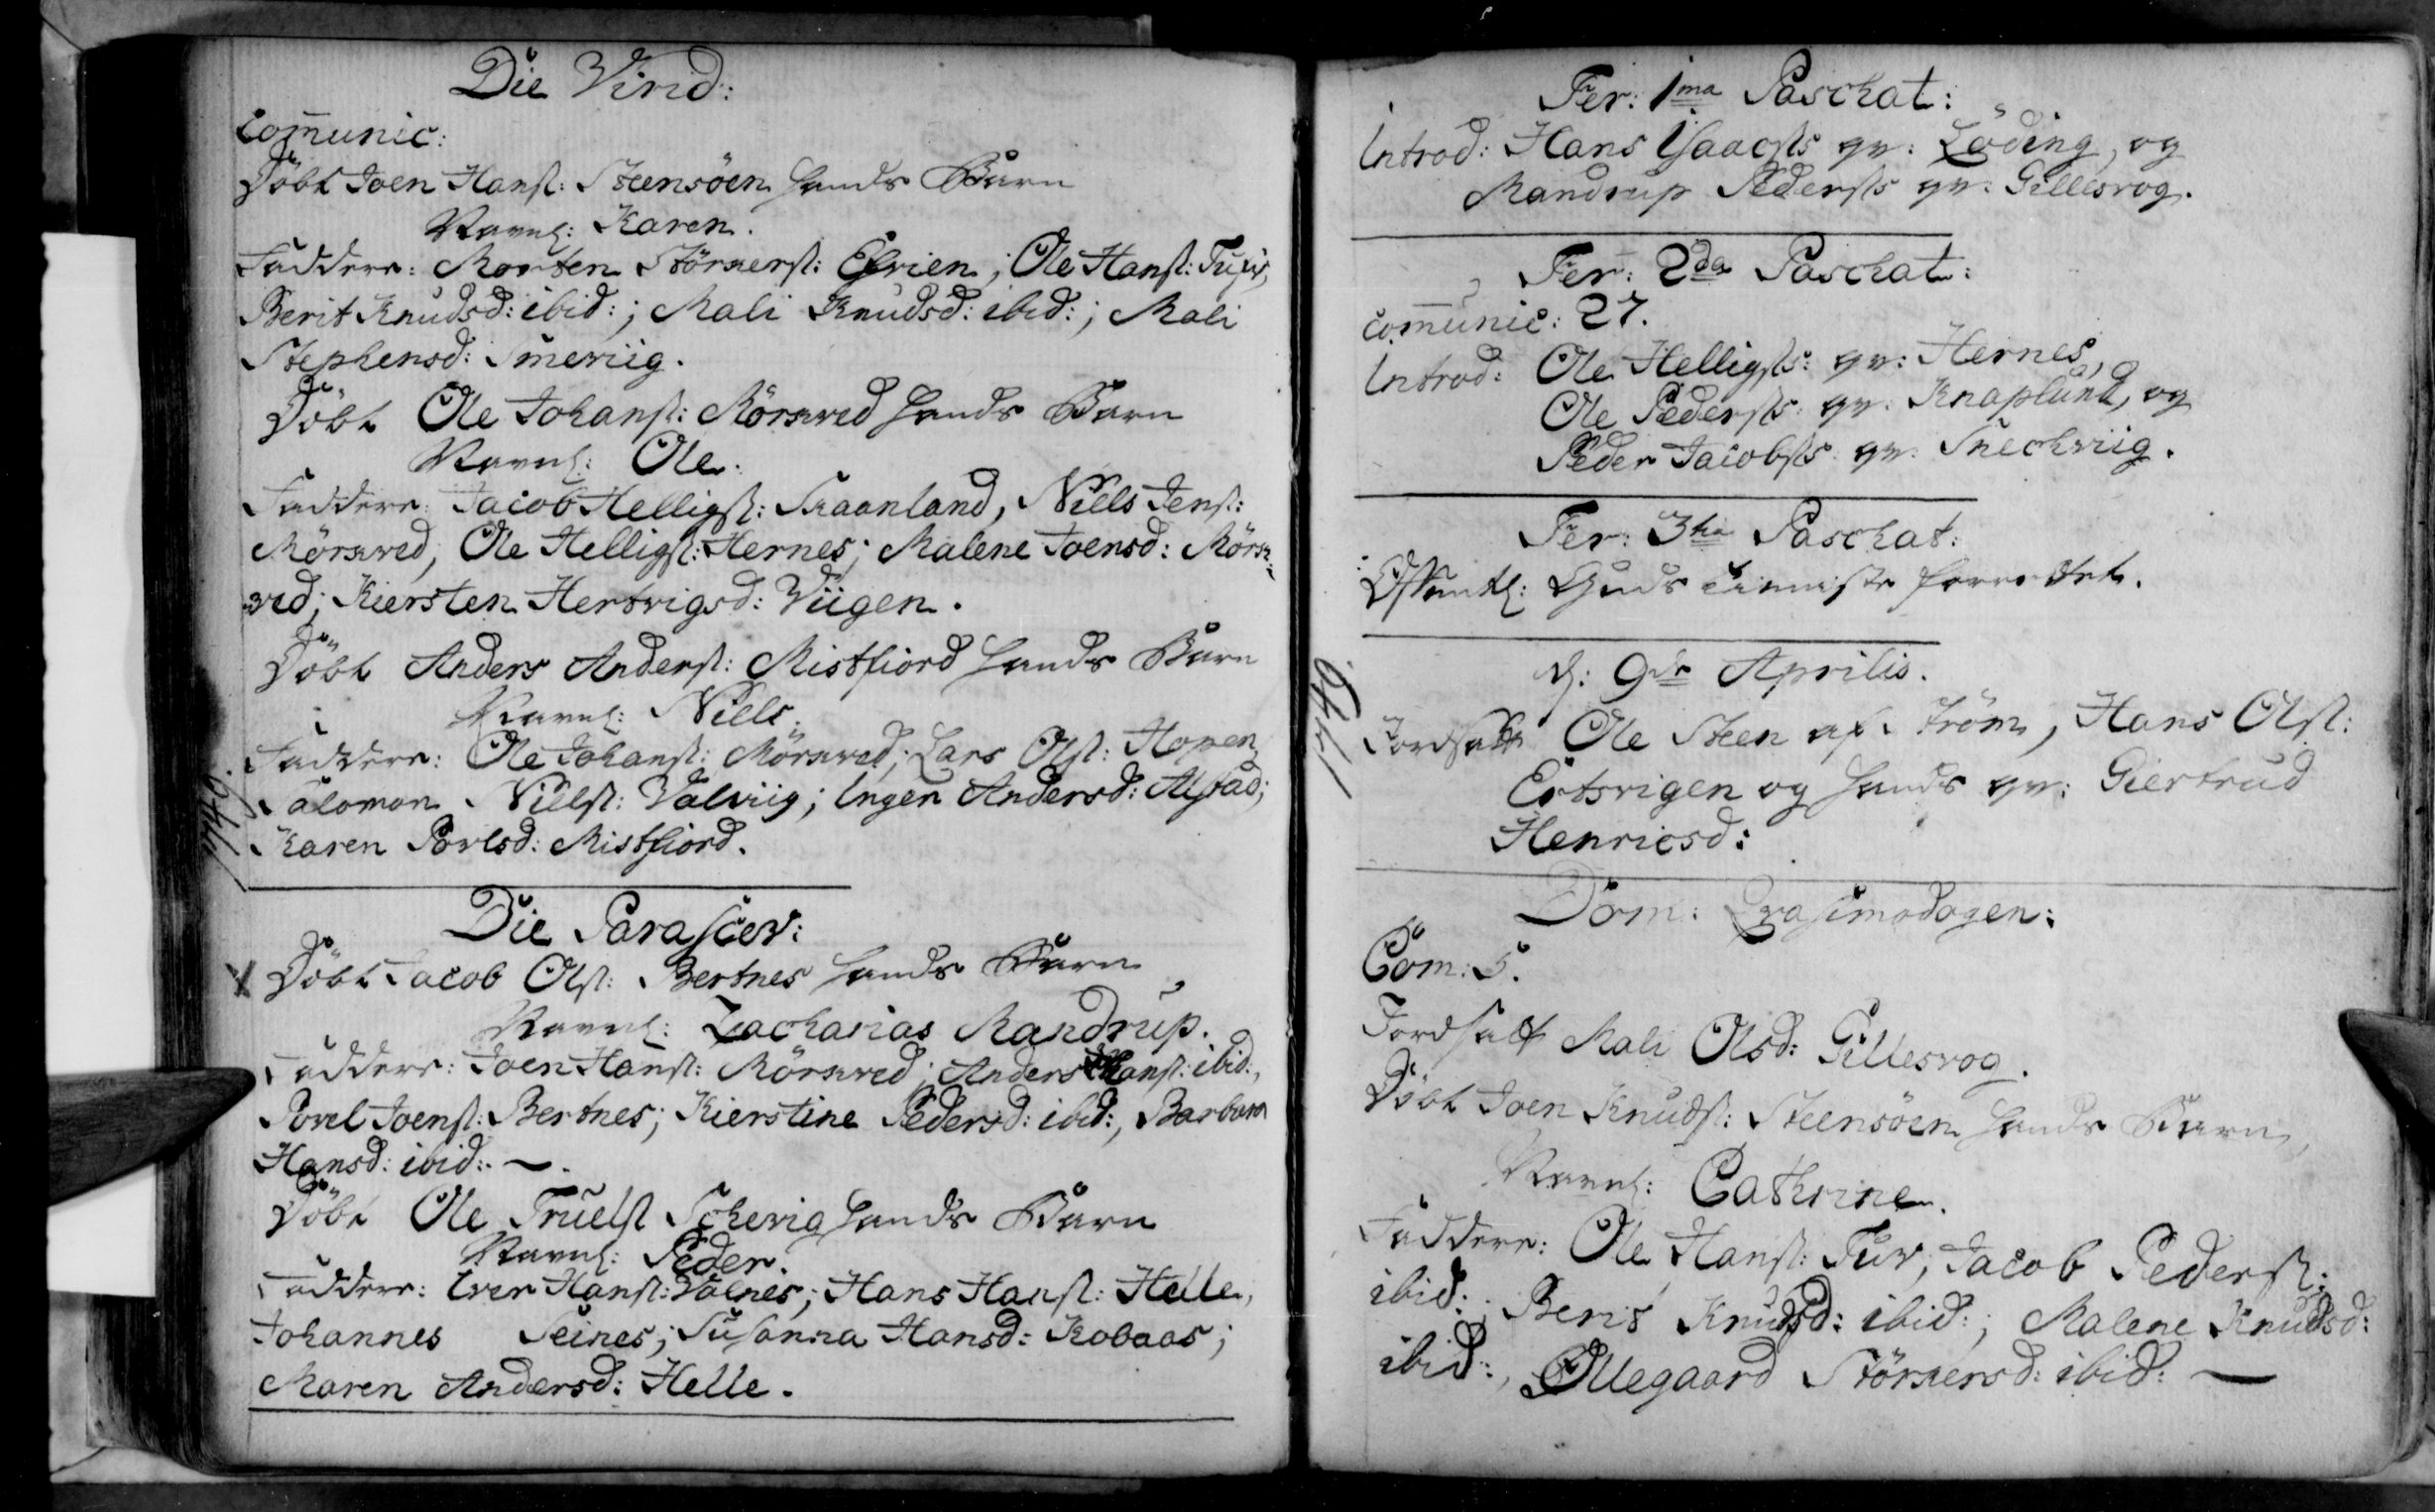 Die Virid:
Comunic:
Döbt Joen Hansſ: Steensöen hands Barn
Navnl: Karen.
Faddere: Morten Störkersſ: Eſvien; Ole Hansſ: Tuv,
Berit Knudsd: ibid:; Mali Knudsd: ibid:; Mali
Stephensd: Smeviig.
Döbt Ole Johansſ: Mörkved hands Barn
Navnl: Ole.
Faddere: Jacob Helligſ: Straanland, Niels Jensſ:
Mörkved, Ole Helligſ: Hernes; Malene Joensd: Mörk-
ved; Kiersten Hertvigsd: Viigen.
Döbt Anders Andersſ: Mistfiord hands Barn
Navnl: Niels.
Faddere: Ole Johansſ: Mörkved; Lars Olsſ: Hopen,
Salomon Nielsſ: Valviig; Inger Andersd: Alſtad;
Karen Povlsd: Mistfiord.
1749.
Die Paraſcev:
Döbt Jacob Olsſ: Bertnes hands Barn
Navnl: Zacharias Mandrup.
Faddere: Joen Hansſ: Mörkved; Anders Hansſ: ibid:,
Povel Joensſ: Bertnes; Kierstine Pedersd: ibid:, Barbara
Hansd: ibid: —.
Döbt Ole Truelsſ Schevig hands Barn
Navnl: Peder.
Faddere: Iver Hansſ: Valnes; Hans Hansſ: Helle,
Johannes Seines; Suſanna Hansd: Kobaas;
Maren Andersd: Helle.
Fer: 1ma Paschat:
Introd: Hans Iſaacſs qv: Löding, og
Mandrup Pedersſs qv: Gillesvog.
Fer: 2da Paschat:
Comunic: 27.
Introd: Ole Helligſs: qv: Hernes,
Ole Pedersſs: qv: Knaplund, og
Peder Jacobſs: qv: Snechviig.
Fer: 3tia Paschat:
Offentl: Guds tienniste forrettet.
d: 9de Aprilis.
1749.
Jordfæst Ole Steen af Ström, Hans Olsſ:
Eitsvigen og hands qv: Giertrud
Henricsd:
Dom: Qvasimodogen:
Com: 5.
Jordfæst Mali Olsd: Gillesvog.
Döbt Joen Knudsſ: Steensöen hands Barn,
Navnl: Cathrine.
Faddere: Ole Hansſ: Tuv, Jacob Pedersſ:
ibid:; Berit Knudsd: ibid:; Malene Knudsd:
ibid:, Ollegaard Störkersd: ibid: —